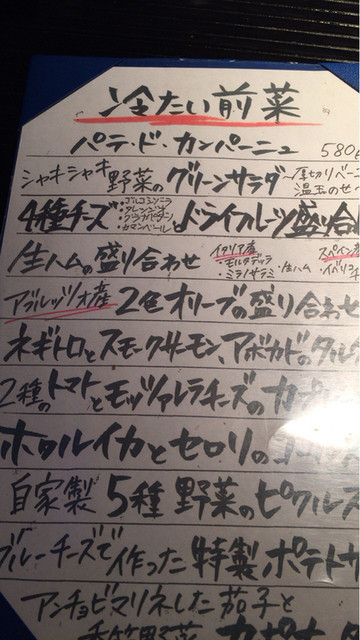 冷たい前菜
パテ・ド・カンパーニュ 580
シャキシャキ野菜のグリーンサラダ ～厚切りベーコン
温玉のせ
4種チーズ ・ゴルゴンゾーラ
・タレッジオ
・グラナパダーノ
・カマンベール とドライフルーツ盛り合
生ハムの盛り合わせ イタリア産
・モルタデッラ
・ミラノサラミ ・生ハム スペイン
・イベリコ
アブルッツォ産 2色オリーブの盛り合わせ
ネギトロとスモークサーモン、アボカドのタル
2種のトマトとモッツァレラチーズのカプ
ホタルイカとセロリの
自家製 5種野菜のピクルス
ブルーチーズで作った特製ポテトサ
アンチョビマリネした茄子と